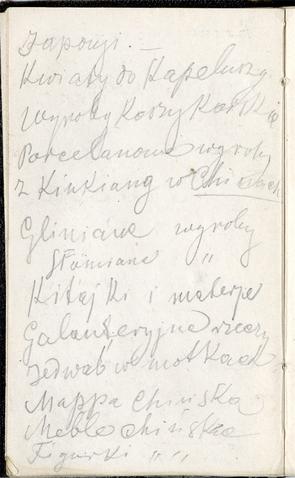 Japonji. —
Kwiaty do Kapeluszy
Wyroby Koszykarskie
Porcelanowe wyroby
z Kinkiang w Chinach
Gliniane wyroby
Słomiane "
Kitajki i materje
Galanteryjne rzeczy
Jedwab w motkach
Mappa Chińska
Meble chińskie
Figurki " "